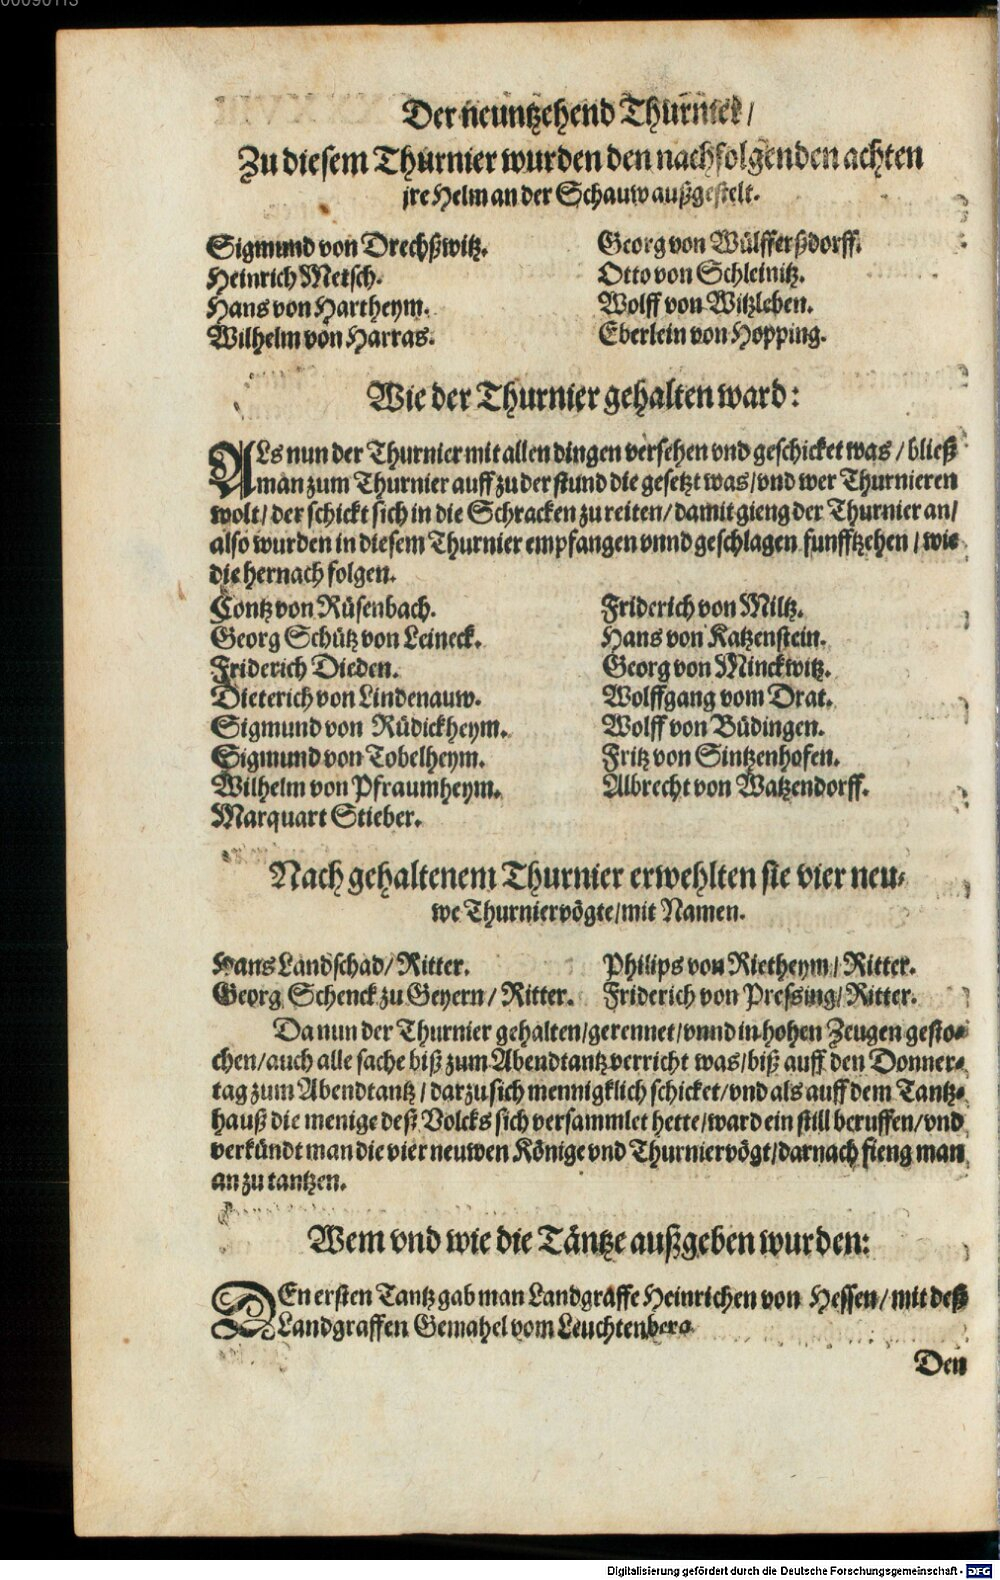 Der neuntzehend Thurnier /
Zu diesem Thurnier wurden den nachfolgenden achten
jre Helm an der Schauw außgestelt.
Sigmund von Drechßwitz.
Heinrich Metsch.
Hans von Hartheym.
Wilhelm von Harras.
Georg von Wülfferßdorff.
Otto von Schleinitz.
Wolff von Witzleben.
Eberlein von Hopping.
Wie der Thurnier gehalten ward:
ALs nun der Thurnier mit allen dingen versehen vnd geschicket was / bließ
man zum Thurnier auff zu der stund die gesetzt was / vnd wer Thurnieren
wolt / der schickt sich in die Schracken zu reiten / damit gieng der Thurnier an /
also wurden in diesem Thurnier empfangen vnnd geschlagen funfftzehen / wie
die hernach folgen.
Contz von Rüsenbach.
Georg Schütz von Leineck.
Friderich Dieden.
Dieterich von Lindenauw.
Sigmund von Rüdickheym.
Sigmund von Tobelheym.
Wilhelm von Pfraumheym.
Marquart Stieber.
Friderich von Miltz.
Hans von Katzenstein.
Georg von Minckwitz.
Wolffgang vom Drat.
Wolff von Büdingen.
Fritz von Sintzenhofen.
Albrecht von Watzendorff.
Nach gehaltenem Thurnier erwehlten sie vier neu-
we Thurniervögte / mit Namen.
Hans Landschad / Ritter.
Georg Schenck zu Geyern / Ritter.
Philips von Rietheym / Ritter.
Friderich von Pressing / Ritter.
Da nun der Thurnier gehalten / gerennet / vnnd in hohen Zeugen gesto-
chen / auch alle sache biß zum Abendtantz verricht was / biß auff den Donner-
tag zum Abendtantz / darzu sich mennigklich schicket / vnd als auff dem Tantz-
hauß die menige deß Volcks sich versammlet hette / ward ein still beruffen / vnd
verkündt man die vier neuwen Könige vnd Thurniervögt / darnach fieng man
an zu tantzen.
Wem vnd wie die Täntze außgeben wurden:
DEn ersten Tantz gab man Landgraffe Heinrichen von Hessen / mit deß
Landgraffen Gemahel vom Leuchtenberg
Den
Digitalisierung gefördert durch die Deutsche Forschungsgemeinschaft - DFG